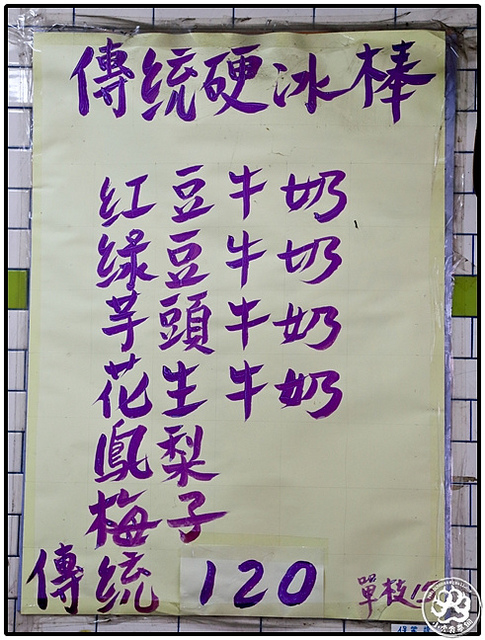 傳統硬冰棒
紅豆牛奶
綠豆牛奶
芋頭牛奶
花生牛奶
鳳梨
梅子
傳統 120 單枝